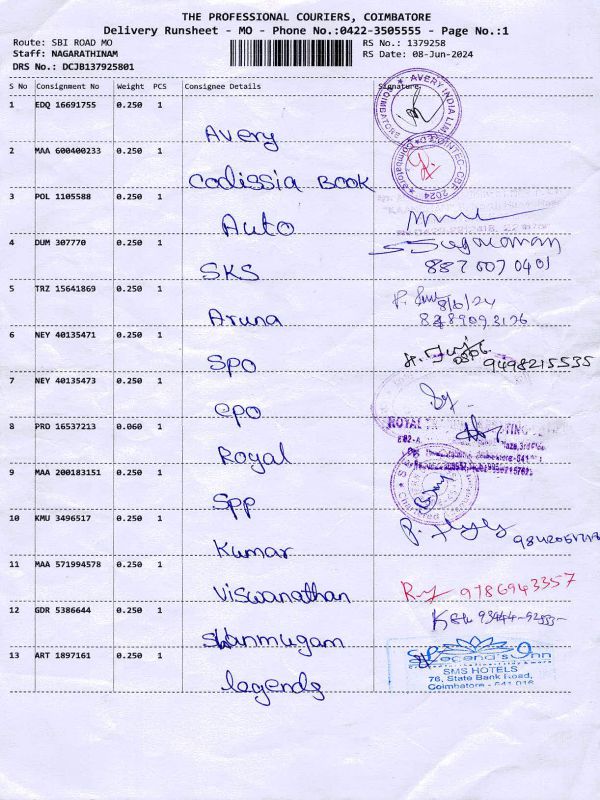 THE PROFESSIONAL COURIERS, COIMBATORE
Delivery Runsheet - MO - Phone No.:0422-3505555 - Page No.:1
Route: SBI ROAD MO
RS No.: 1379258
Staff: NAGARATHINAM
RS Date: 08-Jun-2024
DRS No.: DCJB137925801
S No Consignment No Weight PCS Consignee Details Signature
1 EDQ 16691755 0.250 1
Avery
AVERY INDIA LIMITED
2 MAA 600400233 0.250 1
Codissia Book
3 POL 1105588 0.250 1
Auto
4 DUM 307770 0.250 1
SKS
887 007 0401
5 TRZ 15641869 0.250 1
Aruna
8/6/24
6 NEY 40135471 0.250 1
SPO
9498215535
7 NEY 40135473 0.250 1
CPO
8 PRO 16537213 0.060 1
Royal
ROYAL
9 MAA 200183151 0.250 1
Spp
10 KMU 3496517 0.250 1
Kumar
11 MAA 571994578 0.250 1
Viswanathan
9786943357
12 GDR 5386644 0.250 1
Shanmugam
13 ART 1897161 0.250 1
legends
SMS HOTELS
76, State Bank Road,
Coimbatore - 641 018